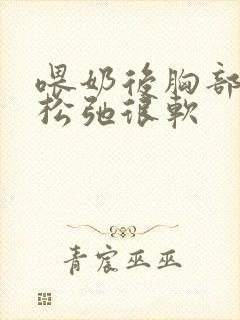 喂奶後胸部
松弛很軟
青宸巫巫